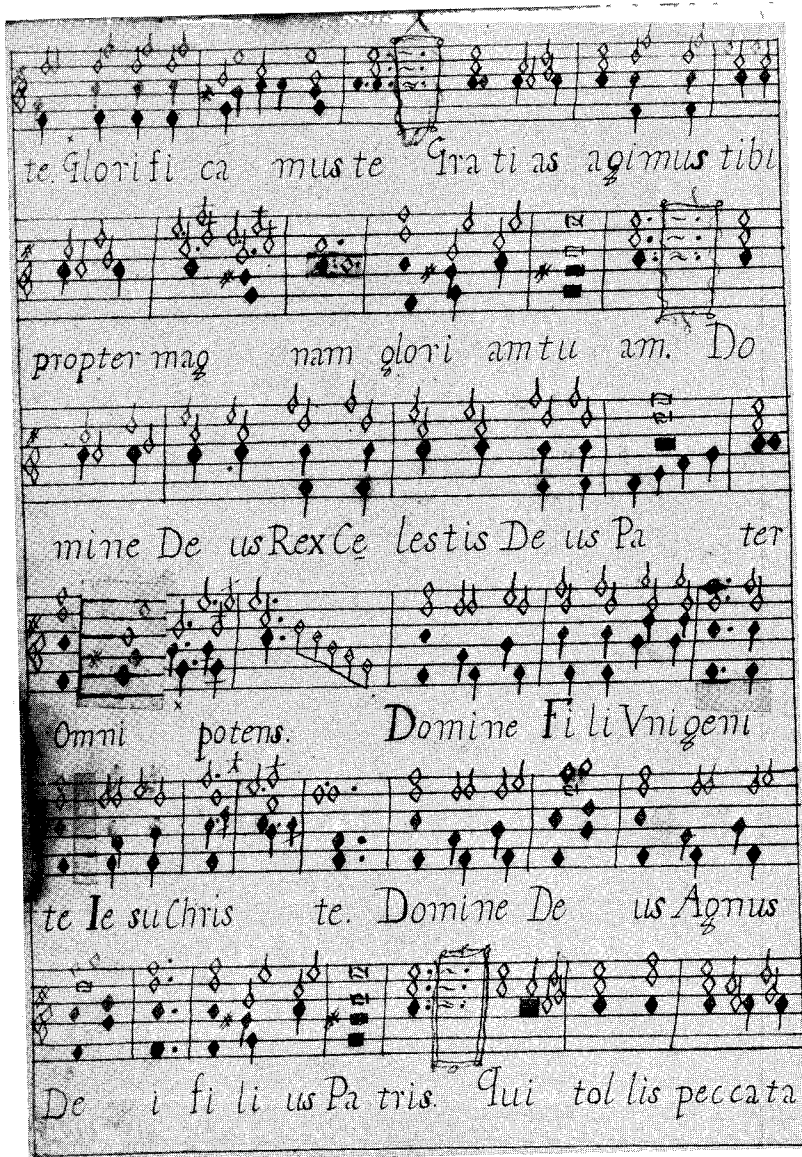 te. Glori fi ca mus te Gra ti as agimus tibi
propter mag nam glori am tu am. Do
mine De us Rex Ce lestis De us Pa ter
Omni potens. Domine Fi li Vnigeni
te Ie su Chris te. Domine De us Agnus
De i fi li us Pa tris. Qui tol lis peccata